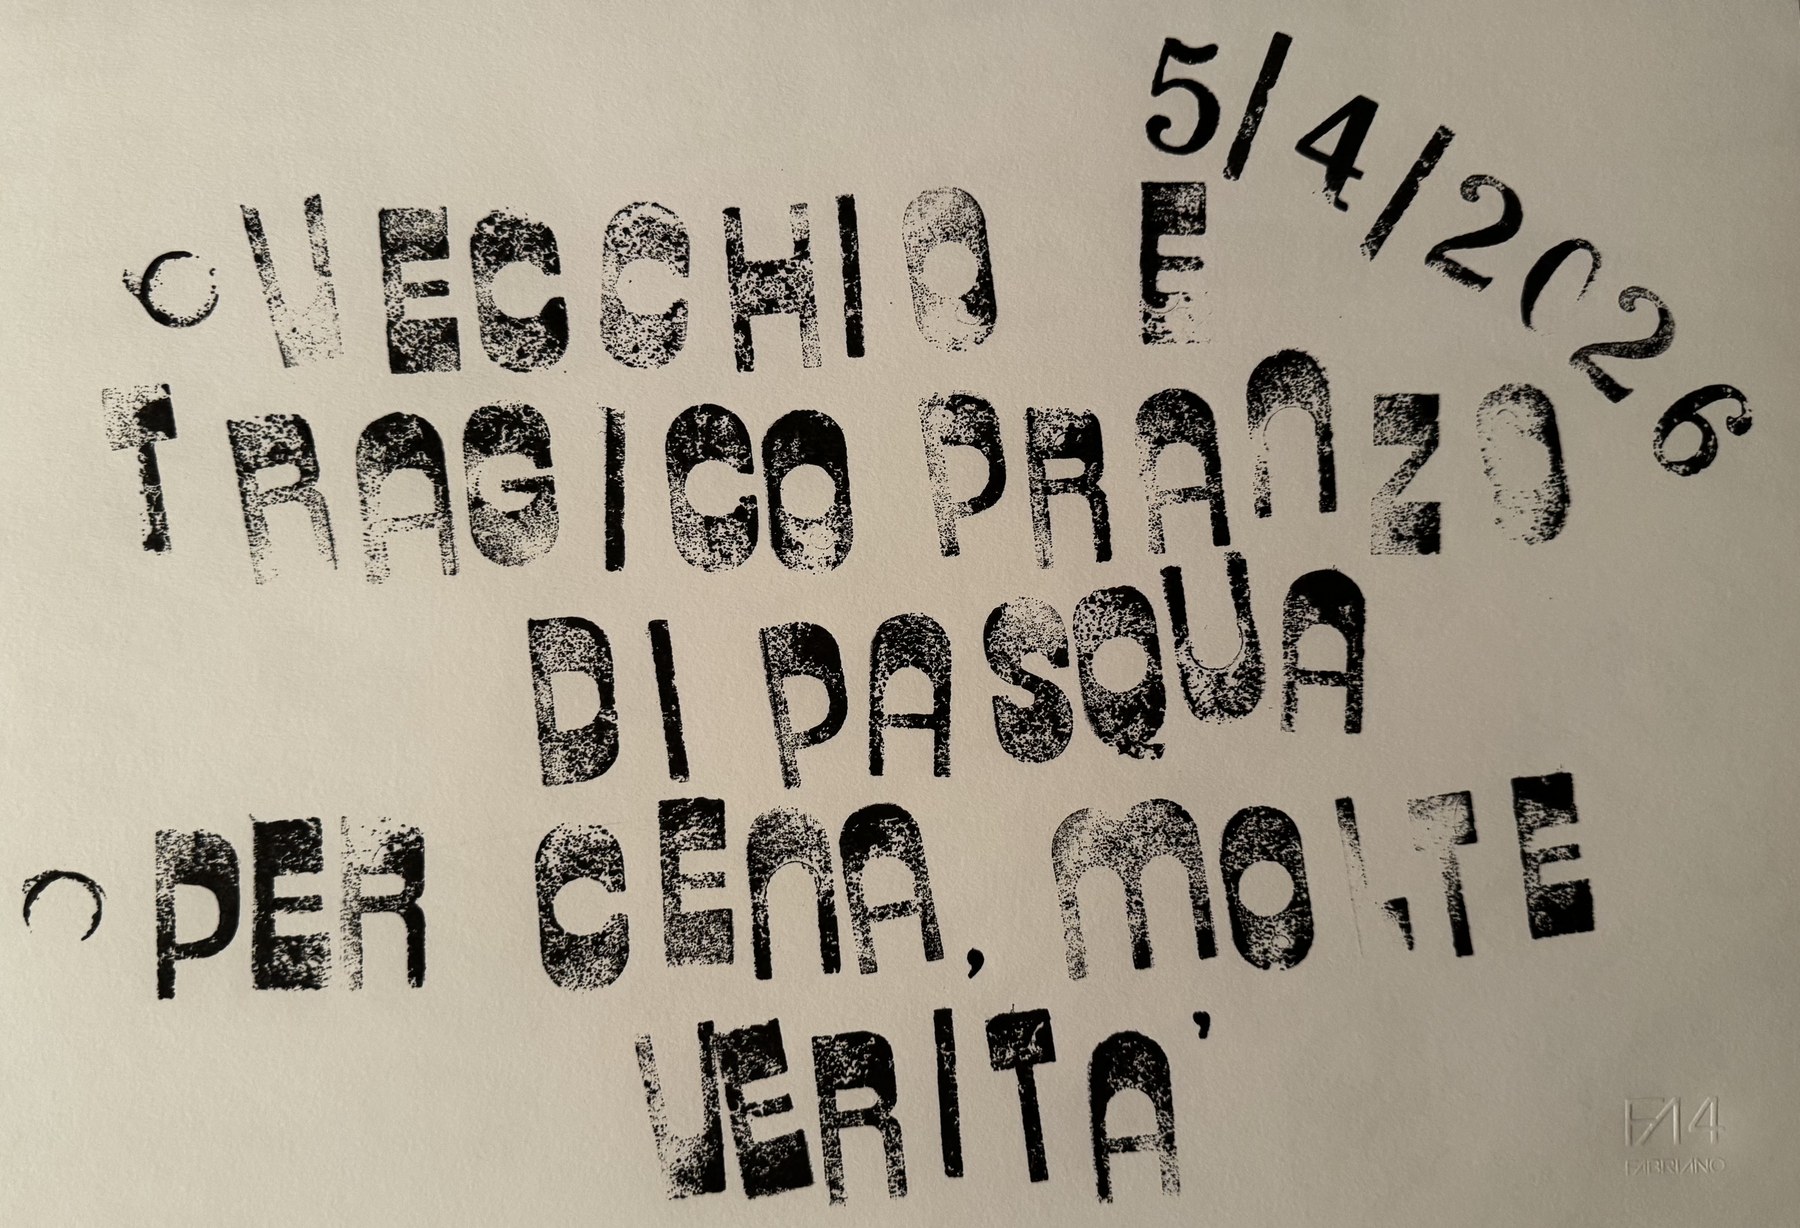 5/4/2026
VECCHIO E
TRAGICO PRANZO
DI PASQUA
PER CENA, MOLTE
VERITA'
FA4
FABRIANO